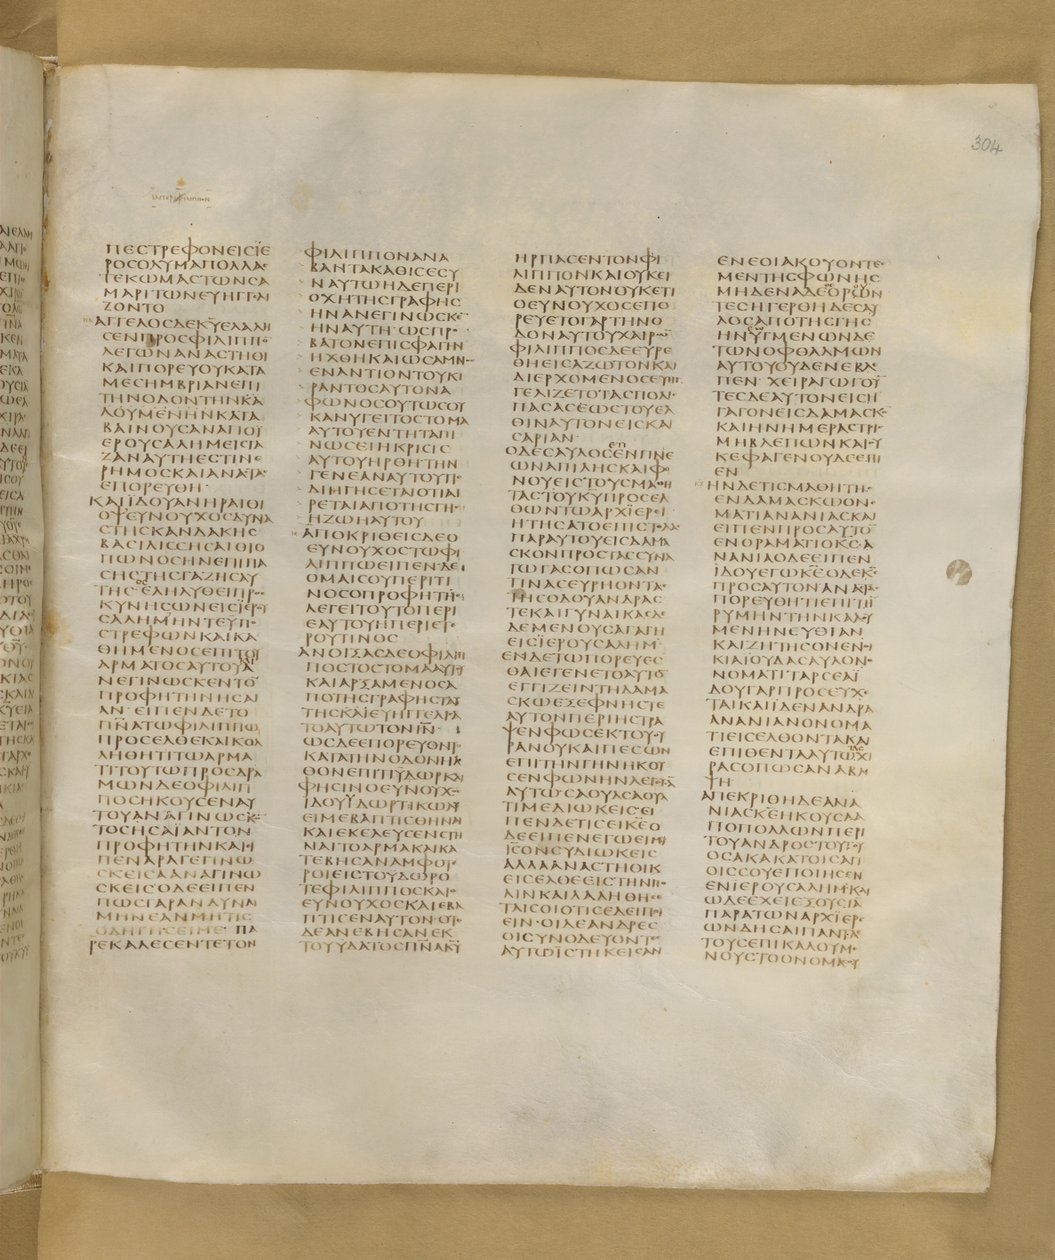 304
ΠΕϹΤΡΕΦΟΝΕΙϹΪΕ
ΡΟϹΟΛΥΜΑΠΟΛΛΑ
ΤΕΚΩΜΑϹΤΩΝϹΑ
ΜΑΡΙΤΩΝΕΥΗΓΓΑΙ
ΖΟΝΤΟ
ΑΓΓΕΛΟϹΔΕΚΥΕΛΑΛΗ
ϹΕΝΠΡΟϹΦΙΛΙΠΠΟ
ΛΕΓΩΝΑΝΑϹΤΗΘΙ
ΚΑΙΠΟΡΕΥΟΥΚΑΤΑ
ΜΕϹΗΜΒΡΙΑΝΕΠΙ
ΤΗΝΟΔΟΝΤΗΝΚΑ
ΛΟΥΜΕΝΗΝΚΑΤΑ
ΒΑΙΝΟΥϹΑΝΑΠΟΪ
ΕΡΟΥϹΑΛΗΜΕΙϹΓΑ
ΖΑΝΑΥΤΗΕϹΤΙΝΕ
ΡΗΜΟϹΚΑΙΑΝΑϹΤΑ
ΕΠΟΡΕΥΘΗ
ΚΑΙΪΔΟΥΑΝΗΡΑΙΘΙ
ΟΨΕΥΝΟΥΧΟϹΔΥΝΑ
ϹΤΗϹΚΑΝΔΑΚΗϹ
ΒΑϹΙΛΙϹϹΗϹΑΙΘΙΟ
ΠΩΝΟϹΗΝΕΠΙΠΑ
ϹΗϹΤΗϹΓΑΖΗϹΑΥ
ΤΗϹΕΛΗΛΥΘΕΙΠΡΟ
ΚΥΝΗϹΩΝΕΙϹΪΕΡΟΥ
ϹΑΛΗΜΗΝΤΕΥΠΟ
ϹΤΡΕΦΩΝΚΑΙΚΑ
ΘΗΜΕΝΟϹΕΠΙΤΟΥ
ΑΡΜΑΤΟϹΑΥΤΟΥΑ
ΝΕΓΙΝΩϹΚΕΝΤΟ
ΠΡΟΦΗΤΗΝΗϹΑΙ
ΑΝ ΕΙΠΕΝΔΕΤΟ
ΠΝΑΤΩΦΙΛΙΠΠΩ
ΠΡΟϹΕΛΘΕΚΑΙΚΟΛ
ΛΗΘΗΤΙΤΩΑΡΜΑ
ΤΙΤΟΥΤΩΠΡΟϹΔΡΑ
ΜΩΝΔΕΟΦΙΛΙΠ
ΠΟϹΗΚΟΥϹΕΝΑΥ
ΤΟΥΑΝΑΓΙΝΩϹΚΟ
ΤΟϹΗϹΑΪΑΝΤΟΝ
ΠΡΟΦΗΤΗΝΚΑΙΕΙ
ΠΕΝΑΡΑΓΕΓΙΝΩ
ϹΚΕΙϹΑΑΝΑΓΙΝΩ
ϹΚΕΙϹΟΔΕΕΙΠΕΝ
ΠΩϹΓΑΡΑΝΔΥΝΑΙ
ΜΗΝΕΑΝΜΗΤΙϹ
ΟΔΗΓΗϹΕΙΜΕ ΠΑ
ΡΕΚΑΛΕϹΕΝΤΕΤΟΝ
ΦΙΛΙΠΠΟΝΑΝΑ
ΒΑΝΤΑΚΑΘΙϹΕϹΥ
ΝΑΥΤΩΗΔΕΠΕΡΙ
ΟΧΗΤΗϹΓΡΑΦΗϹ
ΗΝΑΝΕΓΙΝΩϹΚΕ
ΗΝΑΥΤΗ ΩϹΠΡΟ
ΒΑΤΟΝΕΠΙϹΦΑΓΗΝ
ΗΧΘΗΚΑΙΩϹΑΜΝΟϹ
ΕΝΑΝΤΙΟΝΤΟΥΚΙ
ΡΑΝΤΟϹΑΥΤΟΝΑ
ΦΩΝΟϹΟΥΤΩϹΟΥ
ΚΑΝΥΓΕΙΤΟϹΤΟΜΑ
ΑΥΤΟΥΕΝΤΗΤΑΠΙ
ΝΩϹΕΙΗΚΡΙϹΙϹ
ΑΥΤΟΥΗΡΘΗΤΗΝ
ΓΕΝΕΑΝΑΥΤΟΥΤΙϹ
ΔΙΗΓΗϹΕΤΑΙΟΤΙΑΙ
ΡΕΤΑΙΑΠΟΤΗϹΓΗϹ
ΗΖΩΗΑΥΤΟΥ
ΑΠΟΚΡΙΘΕΙϹΔΕΟ
ΕΥΝΟΥΧΟϹΤΩΦΙ
ΛΙΠΠΩΕΙΠΕΝΔΕ
ΟΜΑΙϹΟΥΠΕΡΙΤΙ
ΝΟϹΟΠΡΟΦΗΤΗϹ
ΛΕΓΕΙΤΟΥΤΟΠΕΡΙ
ΕΑΥΤΟΥΗΠΕΡΙΕΤΕ
ΡΟΥΤΙΝΟϹ
ΑΝΟΙΞΑϹΔΕΟΦΙΛΙΠ
ΠΟϹΤΟϹΤΟΜΑΑΥΤΟΥ
ΚΑΙΑΡΞΑΜΕΝΟϹΑ
ΠΟΤΗϹΓΡΑΦΗϹΤΑΥ
ΤΗϹΚΑΙΕΥΗΓΓΕΛΙΣΑ
ΤΟΑΥΤΩΤΟΝΙΝ
ΩϹΔΕΕΠΟΡΕΥΟΝΤΟ
ΚΑΤΑΤΗΝΟΔΟΝΗΛ
ΘΟΝΕΠΙΤΙΥΔΩΡΚΑΙ
ΦΗϹΙΝΟΕΥΝΟΥΧΟϹ
ΙΔΟΥΥΔΩΡΤΙΚΩΛΥ
ΕΙΜΕΒΑΠΤΙϹΘΗΝΑΙ
ΚΑΙΕΚΕΛΕΥϹΕΝϹΤΗ
ΝΑΙΤΟΑΡΜΑΚΑΙΚΑ
ΤΕΒΗϹΑΝΑΜΦΟΤΕ
ΡΟΙΕΙϹΤΟΥΔΩΡΟ
ΤΕΦΙΛΙΠΠΟϹΚΑΙΟ
ΕΥΝΟΥΧΟϹΚΑΙΕΒΑ
ΠΤΙϹΕΝΑΥΤΟΝ ΟΤΕ
ΔΕΑΝΕΒΗϹΑΝΕΚ
ΤΟΥΥΔΑΤΟϹΠΝΑΚΥ
ΗΡΠΑϹΕΝΤΟΝΦΙ
ΛΙΠΠΟΝΚΑΙΟΥΚΕΙ
ΔΕΝΑΥΤΟΝΟΥΚΕΤΙ
ΟΕΥΝΟΥΧΟϹΕΠΟ
ΡΕΥΕΤΟΓΑΡΤΗΝΟ
ΔΟΝΑΥΤΟΥΧΑΙΡΩΝ
ΦΙΛΙΠΠΟϹΔΕΕΥΡΕ
ΘΗΕΙϹΑΖΩΤΟΝΚΑΙ
ΔΙΕΡΧΟΜΕΝΟϹΕΥΗΓ
ΓΕΛΙΖΕΤΟΤΑϹΠΟΛΙϹ
ΠΑϹΑϹΕΩϹΤΟΥΕΛ
ΘΙΝΑΥΤΟΝΕΙϹΚΑΙ
ϹΑΡΙΑΝ
ΟΔΕϹΑΥΛΟϹΕΝΠΝΕ
ΩΝΑΠΙΛΗϹΚΑΙΦΟ
ΝΟΥΕΙϹΤΟΥϹΜΑΘΗ
ΤΑϹΤΟΥΚΥΠΡΟϹΕΛ
ΘΩΝΤΩΑΡΧΙΕΡΕΙ
ΗΤΗϹΑΤΟΕΠΙϹΤΟΛΑϹ
ΠΑΡΑΥΤΟΥΕΙϹΔΑΜΑ
ϹΚΟΝΠΡΟϹΤΑϹϹΥΝΑ
ΓΩΓΑϹΟΠΩϹΑΝ
ΤΙΝΑϹΕΥΡΗΟΝΤΑ
ΤΗϹΟΔΟΥΑΝΔΡΑϹ
ΤΕΚΑΙΓΥΝΑΙΚΑϹΔΕ
ΔΕΜΕΝΟΥϹΑΓΑΓΗ
ΕΙϹΪΕΡΟΥϹΑΛΗΜ
ΕΝΔΕΤΩΠΟΡΕΥΕϹ
ΘΑΙΕΓΕΝΕΤΟΑΥΤΟ
ΕΓΓΙΖΕΙΝΤΗΔΑΜΑ
ϹΚΩΕΞΕΦΝΗϹΤΕ
ΑΥΤΟΝΠΕΡΙΗϹΤΡΑ
ΨΕΝΦΩϹΕΚΤΟΥΟΥ
ΡΑΝΟΥΚΑΙΠΕϹΩΝ
ΕΠΙΤΗΝΓΗΝΗΚΟΥ
ϹΕΝΦΩΝΗΝΛΕΓΟΥϹΑ
ΑΥΤΩϹΑΟΥΛϹΑΟΥΛ
ΤΙΜΕΔΙΩΚΕΙϹ ΕΙ
ΠΕΝΔΕΤΙϹΕΙΚΕΟ
ΔΕΕΙΠΕΝΕΓΩΕΙΜΙ
ΙϹΟΝϹΥΔΙΩΚΕΙϹ
ΑΛΛΑΑΝΑϹΤΗΘΙΚ
ΕΙϹΕΛΘΕΕΙϹΤΗΝΠΟ
ΛΙΝΚΑΙΛΑΛΗΘΗϹΕ
ΤΑΙϹΟΙΟΤΙϹΕΔΕΙΠΟΙ
ΕΙΝ ΟΙΔΕΑΝΔΡΕϹ
ΟΙϹΥΝΟΔΕΥΟΝΤΕϹ
ΑΥΤΩΪϹΤΗΚΕΙϹΑΝ
ΕΝΕΟΙΑΚΟΥΟΝΤΕ
ΜΕΝΤΗϹΦΩΝΗϹ
ΜΗΔΕΝΑΔΕΟΡΩΝ
ΤΕϹΗΓΕΡΘΗΔΕϹΑΥ
ΛΟϹΑΠΟΤΗϹΓΗϹ
ΗΝΥΓΜΕΝΩΝΔΕ
ΤΩΝΟΦΘΑΛΜΩΝ
ΑΥΤΟΥΟΥΔΕΝΕΒΛΕ
ΠΕΝ ΧΕΙΡΑΓΩΓΟΥ
ΤΕϹΔΕΑΥΤΟΝΕΙϹΗ
ΓΑΓΟΝΕΙϹΔΑΜΑϹΚΟ
ΚΑΙΗΝΗΜΕΡΑϹΤΡΙϹ
ΜΗΒΛΕΠΩΝΚΑΙΟΥ
ΚΕΦΑΓΕΝΟΥΔΕΕΠΙ
ΕΝ
ΗΝΔΕΤΙϹΜΑΘΗΤΗϹ
ΕΝΔΑΜΑϹΚΩΟΝΟ
ΜΑΤΙΑΝΑΝΙΑϹΚΑΙ
ΕΙΠΕΝΠΡΟϹΑΥΤΟ
ΕΝΟΡΑΜΑΤΙΟΚϹΑ
ΝΑΝΙΑΟΔΕΕΙΠΕΝ
ΙΔΟΥΕΓΩΚΕΟΔΕΚϹ
ΠΡΟϹΑΥΤΟΝΑΝΑϹΤΑ
ΠΟΡΕΥΘΗΤΙΕΠΙΤΗ
ΡΥΜΗΝΤΗΝΚΑΛΟΥ
ΜΕΝΗΝΕΥΘΙΑΝ
ΚΑΙΖΗΤΗϹΟΝΕΝΟΙ
ΚΙΑΙΟΥΔΑϹΑΥΛΟΝΟ
ΝΟΜΑΤΙΤΑΡϹΕΑΪ
ΔΟΥΓΑΡΠΡΟϹΕΥΧΕ
ΤΑΙΚΑΙΪΔΕΝΑΝΔΡΑ
ΑΝΑΝΙΑΝΟΝΟΜΑ
ΤΙΕΙϹΕΛΘΟΝΤΑΚΑΙ
ΕΠΙΘΕΝΤΑΑΥΤΩΧΙ
ΡΑϹΟΠΩϹΑΝΑΒΛΕ
ΨΗ
ΑΠΕΚΡΙΘΗΔΕΑΝΑ
ΝΙΑϹΚΕΗΚΟΥϹΑΑ
ΠΟΠΟΛΛΩΝΠΕΡΙ
ΤΟΥΑΝΔΡΟϹΤΟΥΤΟΥ
ΟϹΑΚΑΚΑΤΟΙϹΑΓΙ
ΟΙϹϹΟΥΕΠΟΙΗϹΕΝ
ΕΝΪΕΡΟΥϹΑΛΗΜΚΑΙ
ΩΔΕΕΧΕΙΕΞΟΥϹΙΑ
ΠΑΡΑΤΩΝΑΡΧΙΕΡΕ
ΩΝΔΗϹΑΙΠΑΝΤΑϹ
ΤΟΥϹΕΠΙΚΑΛΟΥΜΕ
ΝΟΥϹΤΟΟΝΟΜΑϹΟΥ